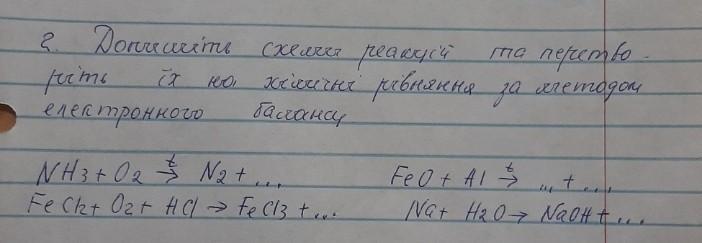 2. Допишіть схеми реакцій та перетво-
ріть їх на хімічні рівняння за методом
електронного балансу
NH3 + O2 t→ N2 + ... FeO + Al t→ ... + ...
FeCl2 + O2 + HCl → FeCl3 + ... Na + H2O → NaOH + ...